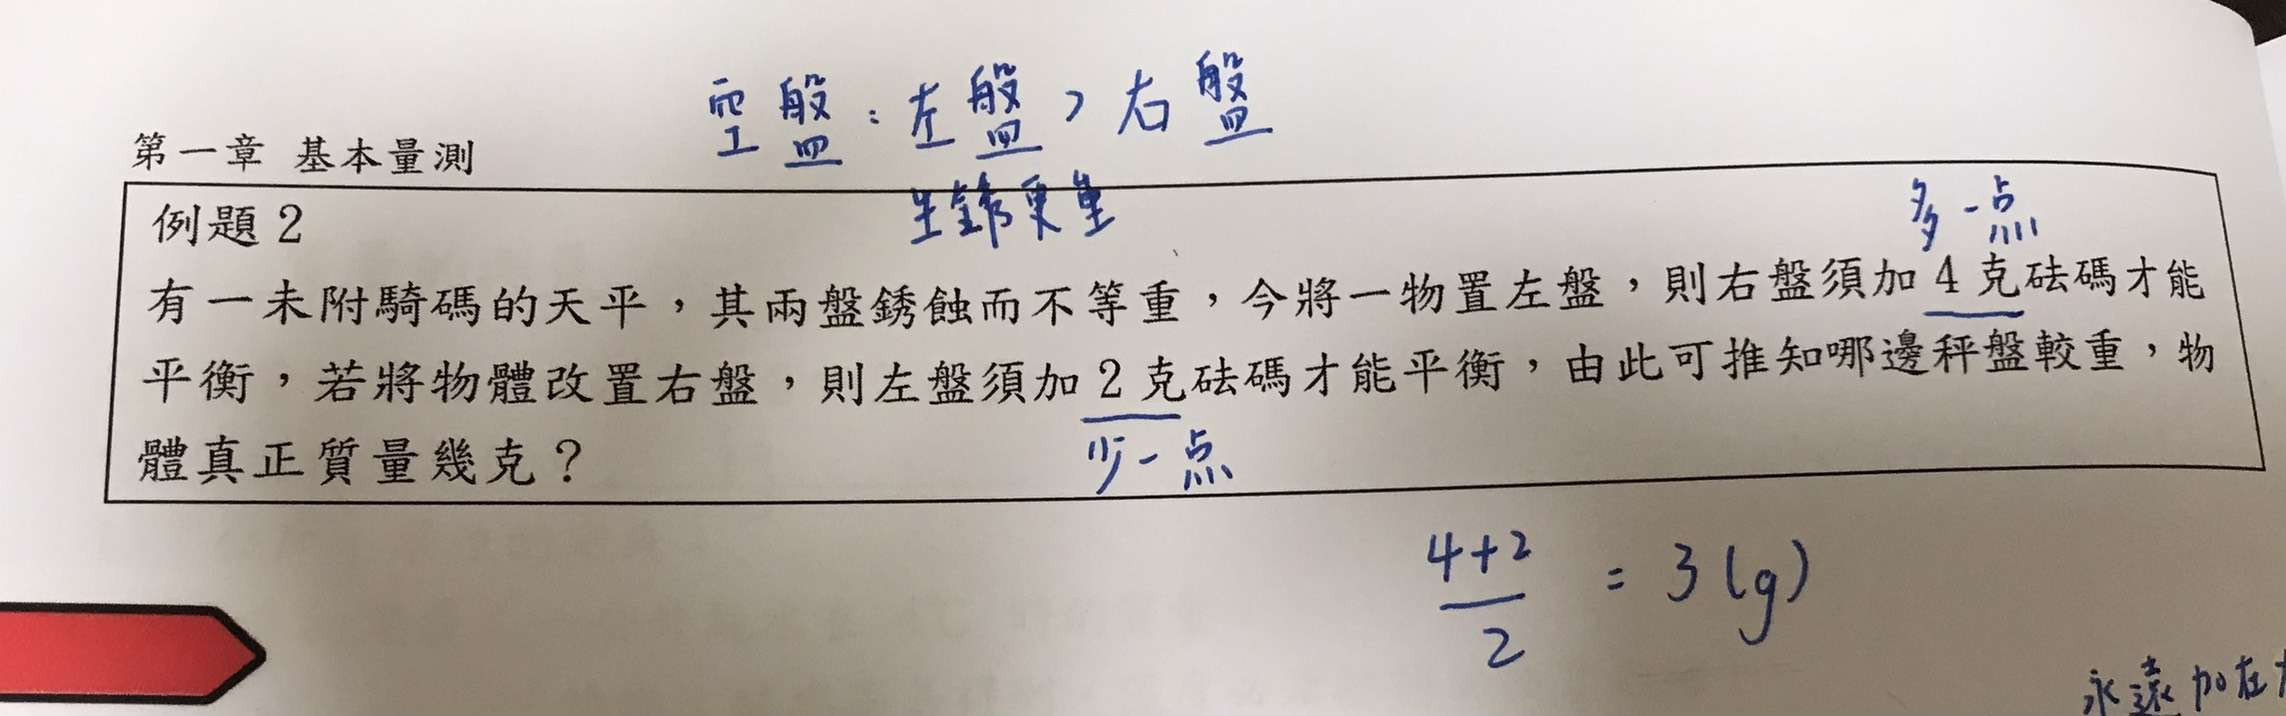 空盤：左盤 > 右盤
第一章 基本量測
生銹更重
多一点
例題 2
有一未附騎碼的天平，其兩盤銹蝕而不等重，今將一物置左盤，則右盤須加 4 克砝碼才能
平衡，若將物體改置右盤，則左盤須加 2 克砝碼才能平衡，由此可推知哪邊秤盤較重，物
體真正質量幾克？
少一点
4+2
2
= 3 (g)
永遠加在